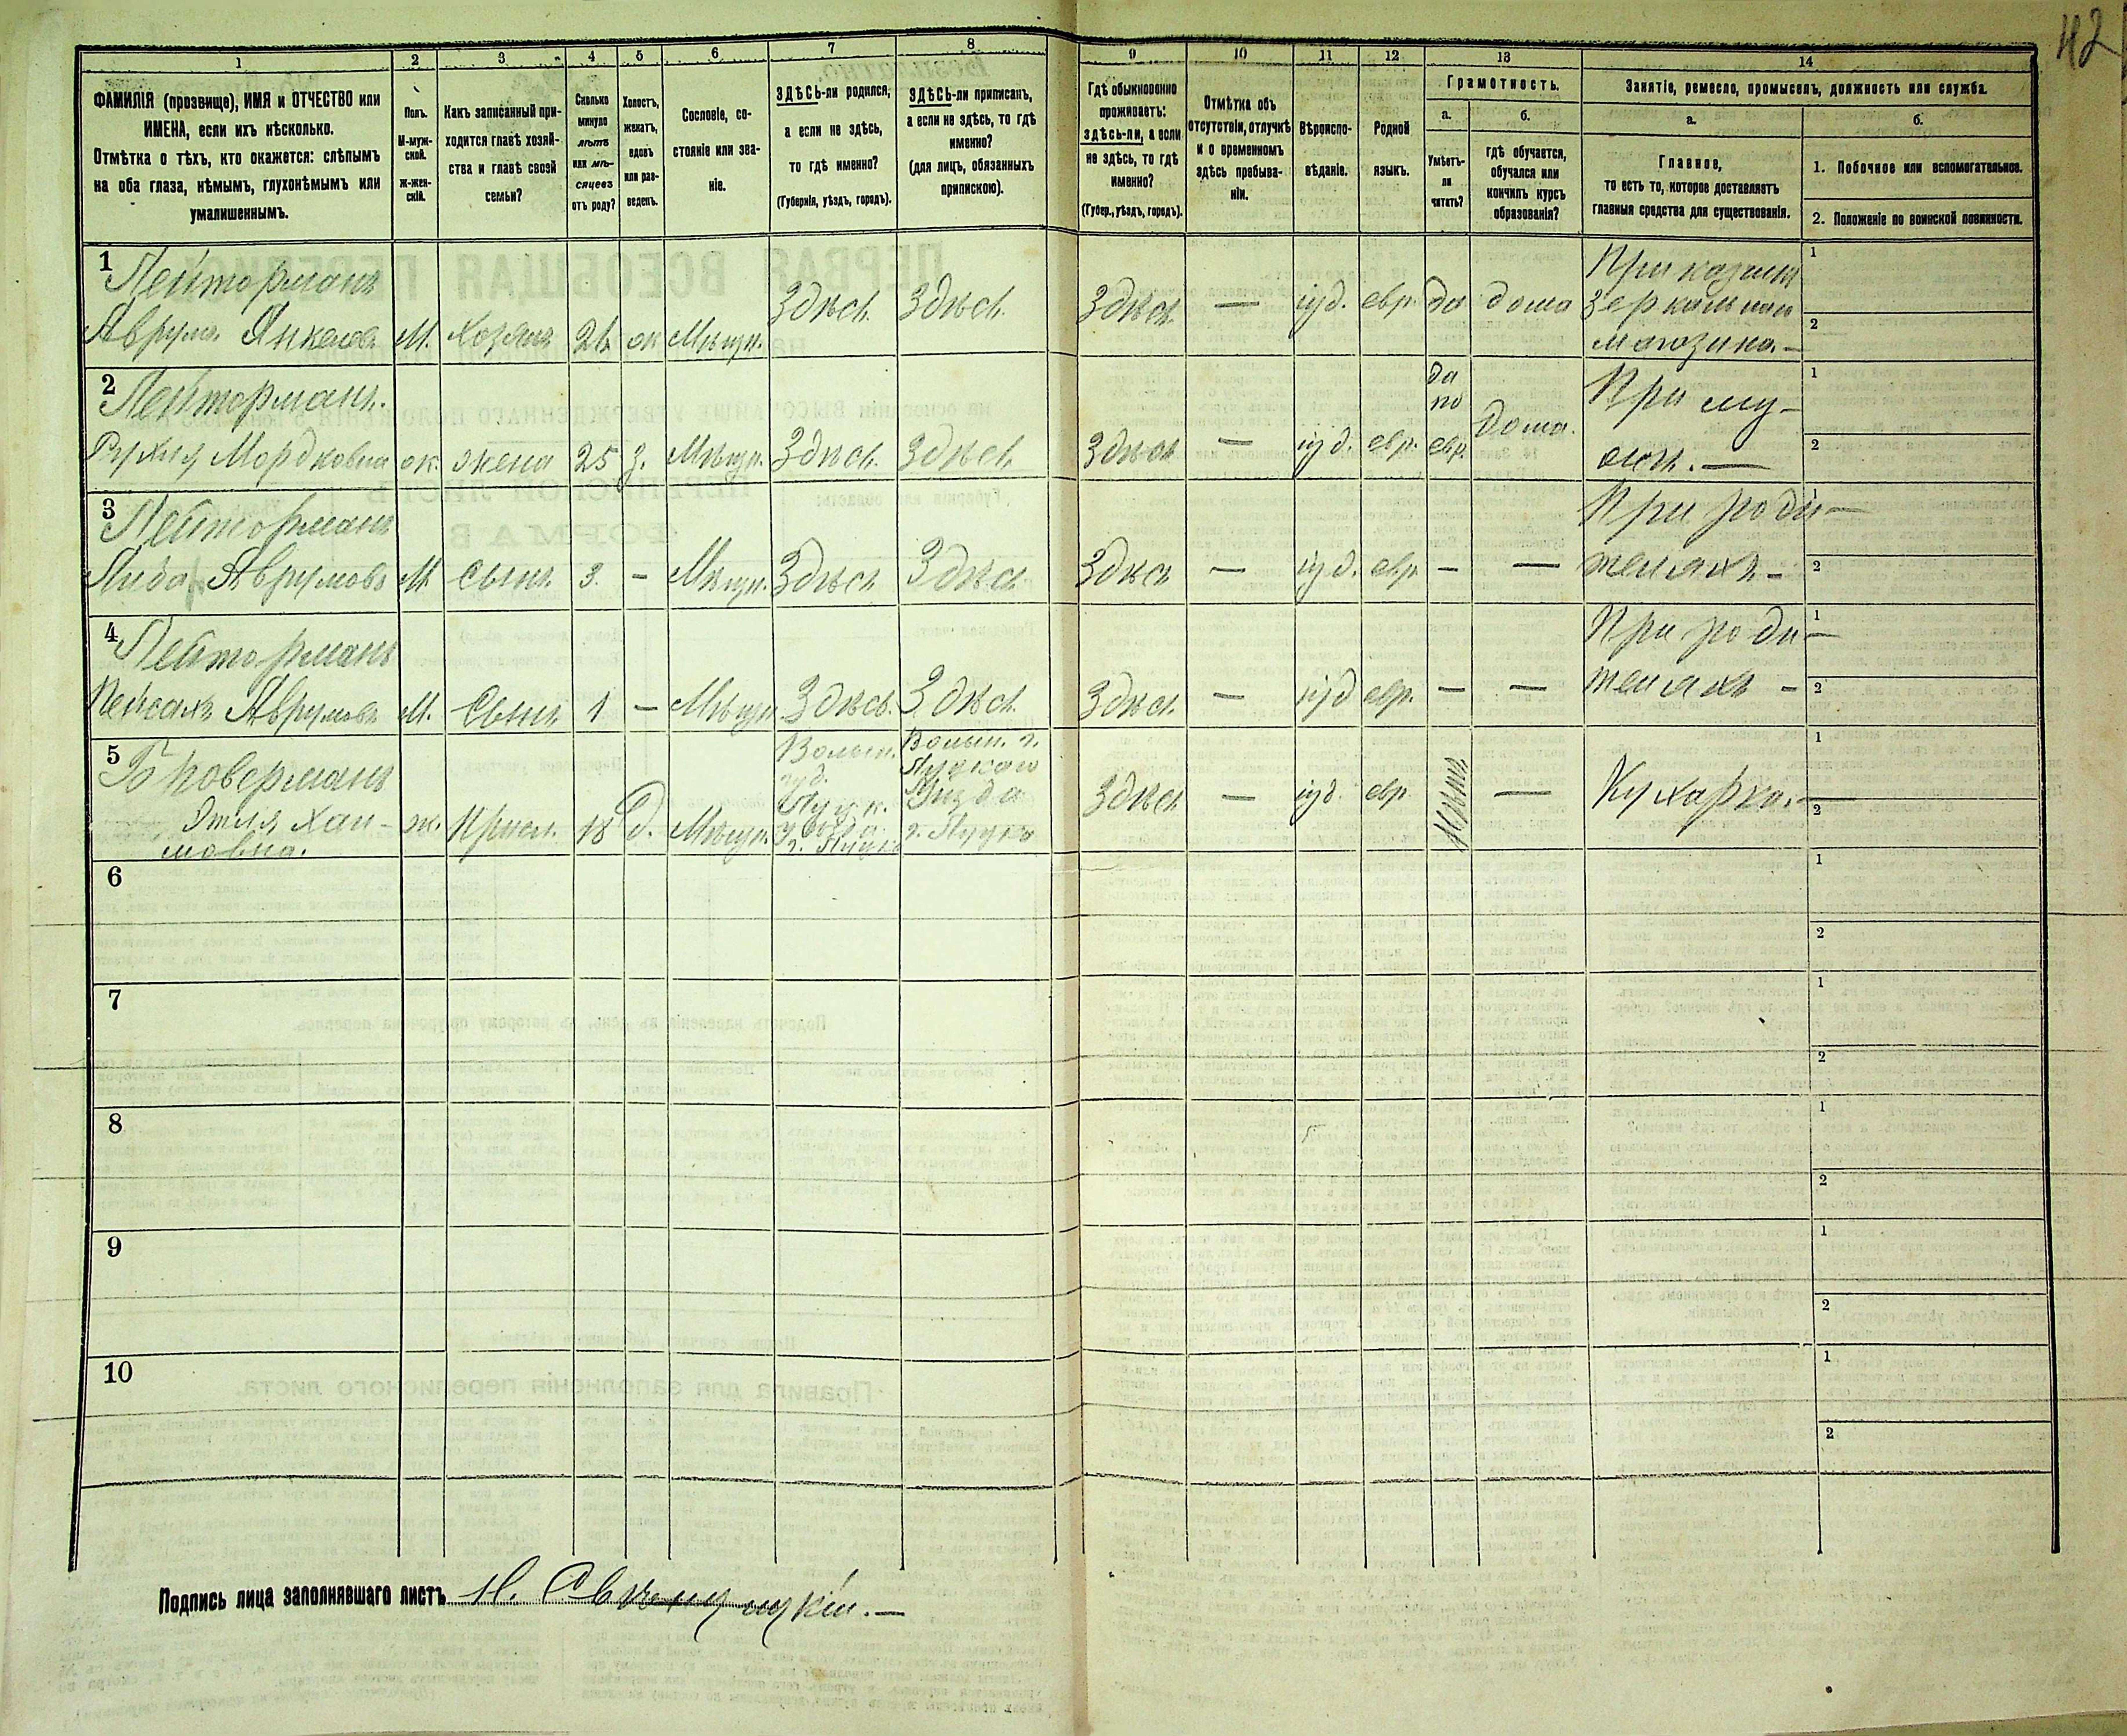 42
1 2 3 4 5 6 7 8 9 10 11 12 13 14
ФАМИЛІЯ (прозвище), ИМЯ и ОТЧЕСТВО или
ИМЕНА, если ихъ нѣсколько.
Отмѣтка о тѣхъ, кто окажется: слѣпымъ
на оба глаза, нѣмымъ, глухонѣмымъ или
умалишеннымъ.
Полъ.
М-муж-
ской.
Ж-жен-
скій.
Какъ записанный при-
ходится главѣ хозяй-
ства и главѣ своей
семьи?
Сколько
минуло
лѣтъ
или мѣ-
сяцевъ
отъ роду?
Холостъ,
женатъ,
вдовъ
или раз-
веденъ.
Сословіе, со-
стояніе или зва-
ніе.
ЗДѢСЬ-ли родился,
а если не здѣсь,
то гдѣ именно?
(Губернія, уѣздъ, городъ).
ЗДѢСЬ-ли приписанъ,
а если не здѣсь, то гдѣ
именно?
(для лицъ, обязанныхъ
припискою).
Гдѣ обыкновенно
проживаетъ:
здѣсь-ли, а если
не здѣсь, то гдѣ
именно?
(Губер., уѣздъ, городъ).
Отмѣтка объ
отсутствіи, отлучкѣ
и о временномъ
здѣсь пребыва-
ніи.
Вѣроиспо-
вѣданіе.
Родной
языкъ.
Грамотность.
а.
Умѣетъ-
ли
читать?
б.
гдѣ обучается,
обучался или
кончилъ курсъ
образованія?
Занятіе, ремесло, промыселъ, должность или служба.
а.
Главное,
то есть то, которое доставляетъ
главныя средства для существованія.
б.
1. Побочное или вспомогательное.
2. Положеніе по воинской повинности.
1
Аврумъ Янкелевъ М. Хозяинъ ж Мѣщ. Здѣсь Здѣсь Здѣсь — іуд. евр. да дома
магазина. —
1
2
2
Рухля Мордковна ж. жена 25 з. Мѣщ. Здѣсь Здѣсь Здѣсь — іуд. евр. да по евр. дома.
При му-
жѣ. —
1
2
3
Аврумовъ М. Сынъ 3. — Мѣщ. Здѣсь Здѣсь Здѣсь — іуд. евр. — —
При роди-
теляхъ. —
1
2
4
Пейсахъ Аврумовъ М. Сынъ 1 — Мѣщ. Здѣсь. Здѣсь Здѣсь — іуд евр. — —
При роди-
теляхъ —
1
2
5
Этля Хаи-
мовна.
ж. Присл. 18 д. Мѣщ.
Волын.
губ.
Луцк.
уѣзда
г. Луцкъ
Волын. г.
Луцкаго
Уѣзда
г. Луцкъ
Здѣсь — іуд. евр. — Кухарка. —
1
2
6
1
2
7
1
2
8
1
2
9
1
2
10
1
2
Подпись лица заполнявшаго листъ